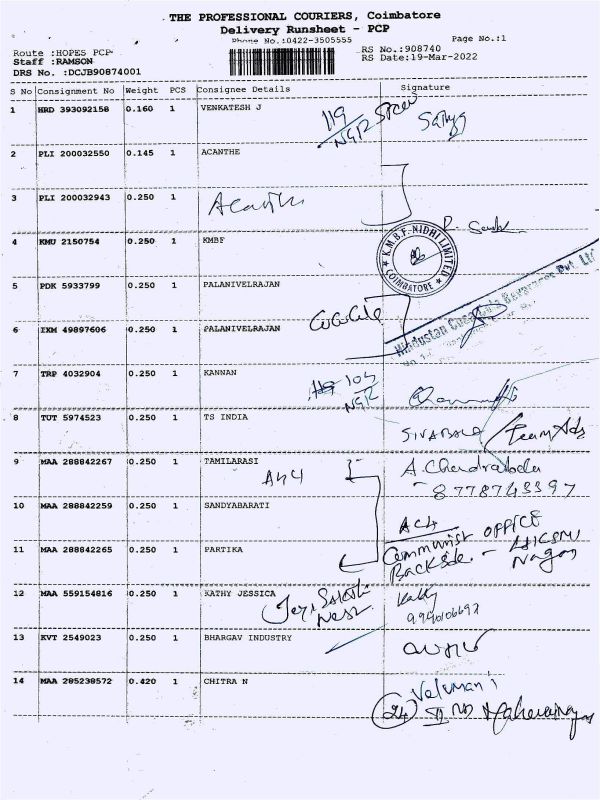 THE PROFESSIONAL COURIERS, Coimbatore
Delivery Runsheet - PCP
Phone No.:0422-3505555
Page No.:1
Route :HOPES PCP
Staff :RAMSON
DRS No. :DCJB90874001
RS No.:908740
RS Date:19-Mar-2022
S No Consignment No Weight PCS Consignee Details Signature
1 HRD 393092158 0.160 1 VENKATESH J
119
NGR
Sathya
2 PLI 200032550 0.145 1 ACANTHE
3 PLI 200032943 0.250 1
Acanthe
4 KMU 2150754 0.250 1 KMBF
K.M.B.F. NIDHI LIMITED
COIMBATORE
5 PDK 5933799 0.250 1 PALANIVELRAJAN
Hindustan Coca-Cola Beverages Pvt. Ltd
6 IXM 49897606 0.250 1 PALANIVELRAJAN
CocaCola
7 TRP 4032904 0.250 1 KANNAN
104
NGR
8 TUT 5974523 0.250 1 TS INDIA
SIVABALA / Team Ads
9 MAA 288842267 0.250 1 TAMILARASI
A.Chendrabala
8778743397
10 MAA 288842259 0.250 1 SANDYABARATI
AC4
Communist OFFICE
Backside -
Nagar
11 MAA 288842265 0.250 1 PARTIKA
12 MAA 559154816 0.250 1 KATHY JESSICA
Kathy
13 KVT 2549023 0.250 1 BHARGAV INDUSTRY
14 MAA 285238572 0.420 1 CHITRA N
Velumani
24 II nd